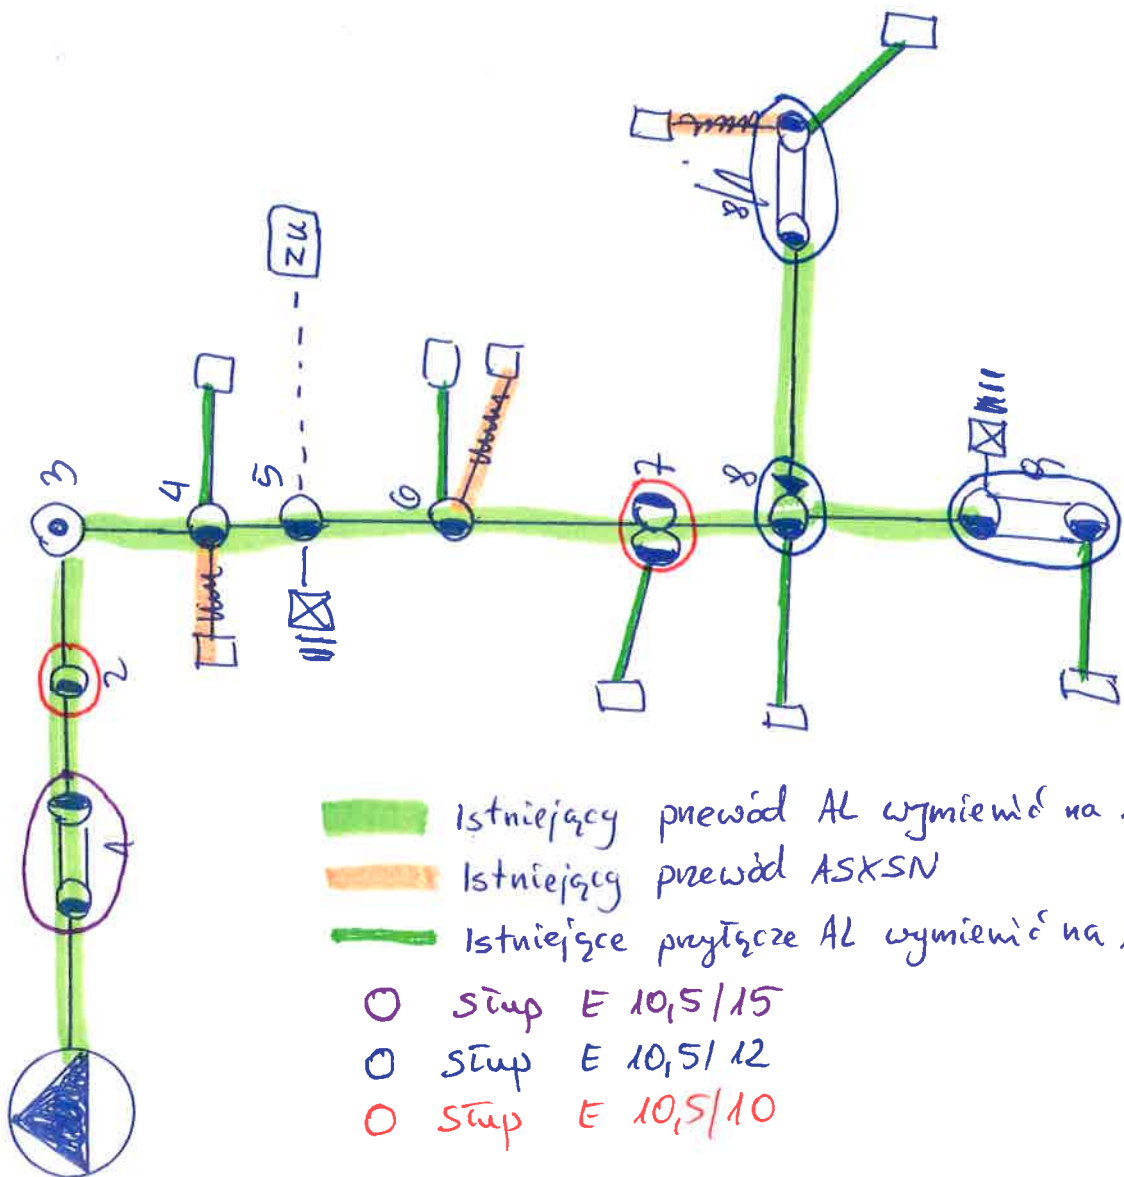 8/1
ZK
3
4
5
6
7
8
9
2
1
Istniejący przewód AL wymienić na .
Istniejący przewód ASXSN
Istniejące przyłącze AL wymienić na .
Słup E 10,5/15
Słup E 10,5/12
Słup E 10,5/10